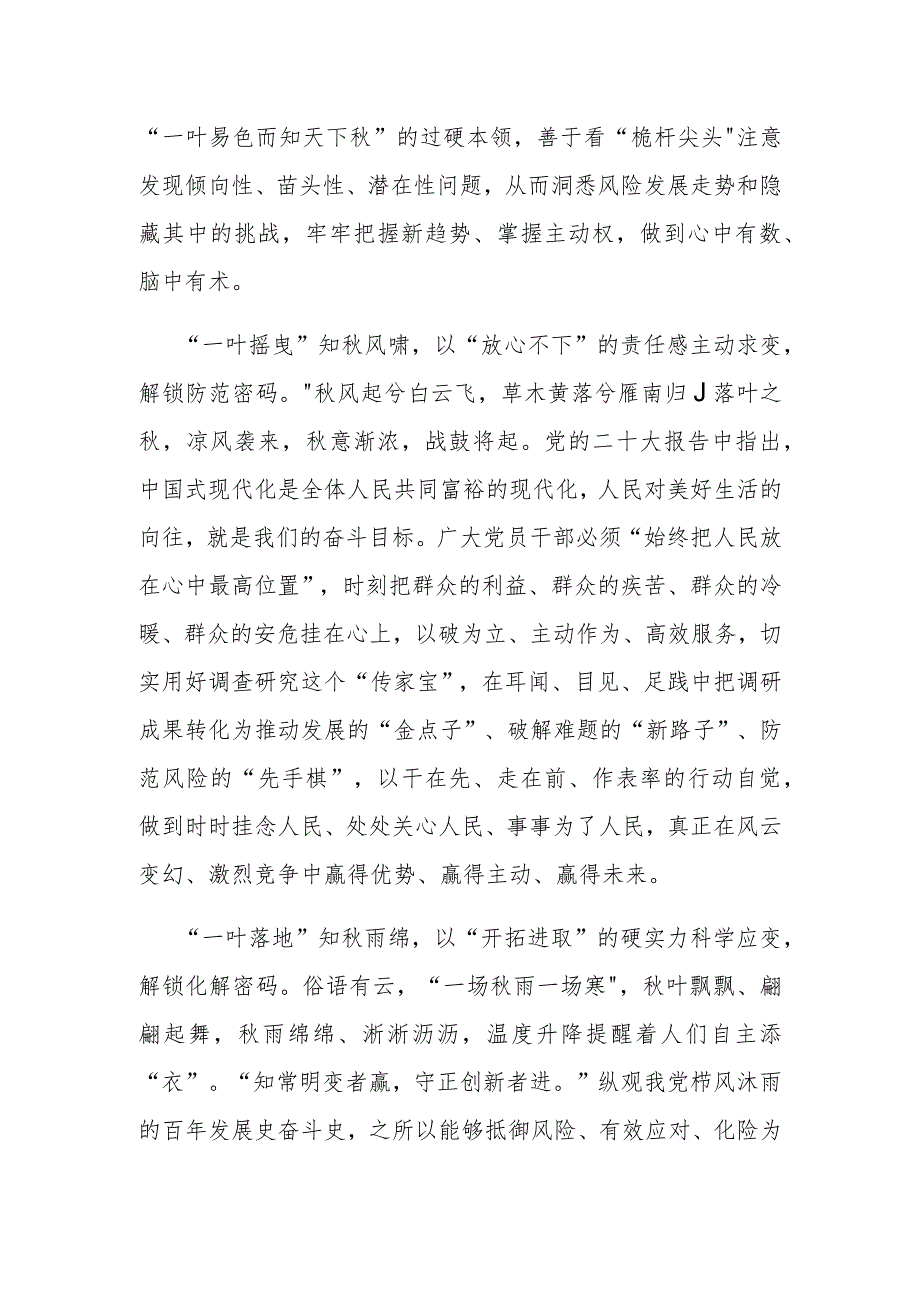 “一叶易色而知天下秋”的过硬本领，善于看“桅杆尖头"注意
发现倾向性、苗头性、潜在性问题，从而洞悉风险发展走势和隐
藏其中的挑战，牢牢把握新趋势、掌握主动权，做到心中有数、
脑中有术。
“一叶摇曳”知秋风啸，以“放心不下”的责任感主动求变，
解锁防范密码。"秋风起兮白云飞，草木黄落兮雁南归J落叶之
秋，凉风袭来，秋意渐浓，战鼓将起。党的二十大报告中指出，
中国式现代化是全体人民共同富裕的现代化，人民对美好生活的
向往，就是我们的奋斗目标。广大党员干部必须“始终把人民放
在心中最高位置”，时刻把群众的利益、群众的疾苦、群众的冷
暖、群众的安危挂在心上，以破为立、主动作为、高效服务，切
实用好调查研究这个“传家宝”，在耳闻、目见、足践中把调研
成果转化为推动发展的“金点子”、破解难题的“新路子”、防
范风险的“先手棋”，以干在先、走在前、作表率的行动自觉，
做到时时挂念人民、处处关心人民、事事为了人民，真正在风云
变幻、激烈竞争中赢得优势、赢得主动、赢得未来。
“一叶落地”知秋雨绵，以“开拓进取”的硬实力科学应变，
解锁化解密码。俗语有云，“一场秋雨一场寒"，秋叶飘飘、翩
翩起舞，秋雨绵绵、淅淅沥沥，温度升降提醒着人们自主添
“衣”。“知常明变者赢，守正创新者进。”纵观我党栉风沐雨
的百年发展史奋斗史，之所以能够抵御风险、有效应对、化险为